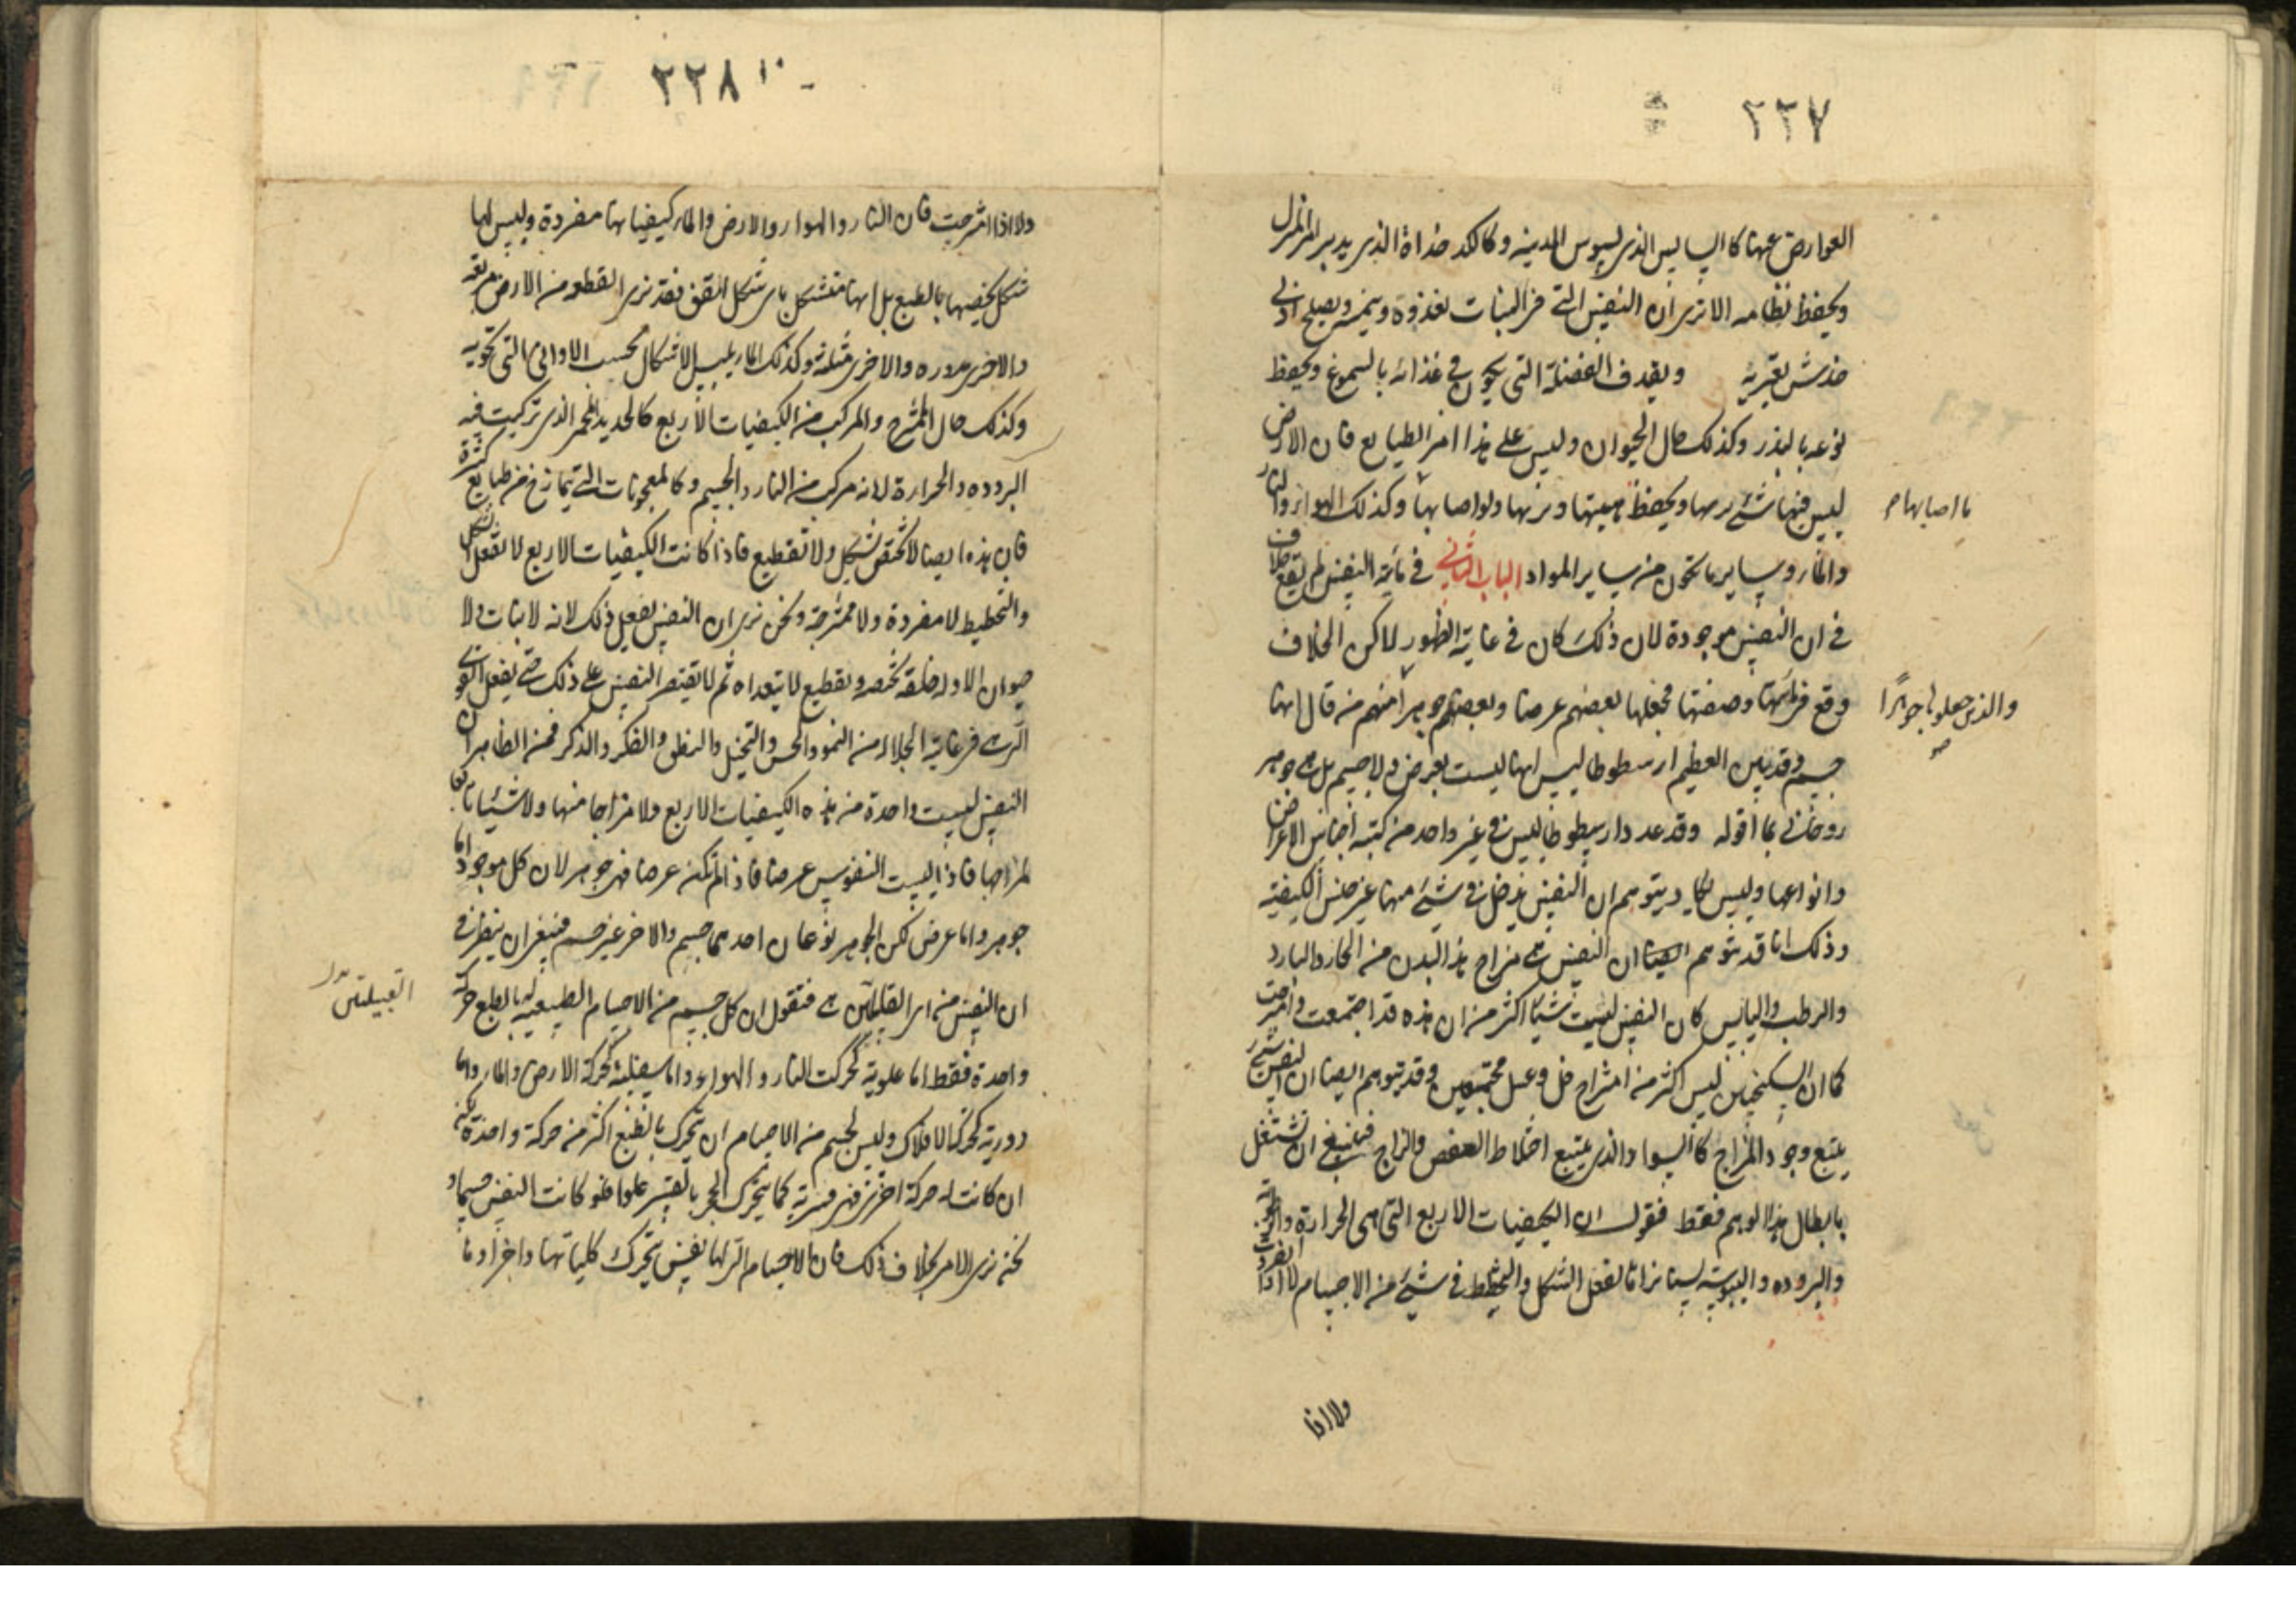 ٢٢٧
العوارض عنها كالسايس الذى يسوس المدينه وكالكدخداة الذى يدبر المنزل
ويحفظ نظامه الا ترى ان النفس التى فى النبات تغذوه وتنميه ويصلح ادنى
خدش يعتريه ويقذف الفضلة التى يكون فى غذائه بالصموغ ويحفظ
نوعه بالبذر وكذلك حال الحيوان وليس على هذا امر الطبايع فان الارض
ليس فيها شئ يرمها ويحفظ هيئتها ويزنها ولو اصابها وكذلك الهواء والنار
ما اصابها م
والماء وساير ما تكون من ساير المواد الباب الثانى فى مائية النفس لم يقع خلاف
فى ان النفس موجودة لان ذلك كان فى غاية الظهور لاكن الخلاف
وقع فى مائيتها وصفتها فجعلها بعضهم عرضا وبعضهم جوهرا منهم من قال انها
والذين جعلوها جوهرًا
صح
جسم وقد بين العظيم ارسطوطاليس انها ليست بعرض ولا جسم بل هى جوهر
روحانى بما اقوله وقد عدد ارسطوطاليس فى غير واحد من كتبه اجناس الاعراض
وانواعها وليس يكاد يتوهم ان النفس يدخل فى شئ منها غير جنس الكيفية
وذلك انا قد نتوهم ايضا ان النفس هى مزاج هذا البدن من الحار والبارد
والرطب واليابس كان النفس ليست شيئا اكثر من ان هذه قد اجتمعت وامتزجت
كما ان السكنجبين ليس اكثر من امتزاج خل وعسل مجتمعين وقد يتوهم ايضا ان النفس شئ
يتبع وجود المزاج كالسواد الذى يتبع اختلاط العفص والزاج فينبغى ان نشتغل
بابطال هذا الوهم فقط فنقول ان الكيفيات الاربع التى هى الحرارة والرطوبة
والبروده واليبوسة لسنا نراها تفعل الشكل والتخطيط فى شئ من الاجسام لا اذا انفردت
ولا اذا
٢٢٨
ولا اذا امتزجت فان النار والهواء والارض والماء كيفياتها مفردة وليس لها
شكل يخصها بالطبع بل انها متشكل باى شكل اتفق فقد نرى القطعه من الارض مربعه
والاخرى مدوره والاخرى مثلثه وكذلك الماء يلبس الاشكال بحسب الاوانى التى تحويه
وكذلك حال الممتزج والمركب من الكيفيات الاربع كالحديد المحمر الذى تركبت فيه
البروده والحرارة لانه مركب من النار والجسم وكالمعجونات التى تمازج من طبايع كثيرة
فان هذه ايضا لا تختص بشكل ولا تقطيع فاذا كانت الكيفيات الاربع لا تفعل الشكل
والتخطيط لا مفردة ولا ممتزجة ونحن نرى ان النفس تفعل ذلك لانه لا نبات ولا
حيوان الا وله خلقه تختصه وتقطيع لا يتعداه ثم لا تقتصر النفس على ذلك حتى يفعل القوى
التى هى فى غاية الجلاله من النمو والحس والتخيل والنطق والفكر والذكر فمن الظاهر ان
النفس ليست واحدة من هذه الكيفيات الاربع ولا مزاجا منها ولا شيئا تابعا
لمزاجها فاذا ليست النفوس عرضا فاذ لم تكن عرضا فهى جوهر لان كل موجود اما
جوهر واما عرض لكن الجوهر نوعان احدهما جسم والاخر غير جسم فينبغى ان ننظر فى
ان النفس من اى القبيلتين هى فنقول ان كل جسم من الاجسام الطبيعيه له بالطبع حركة
القبيلتين بدل
واحدة فقط اما علوية كحركت النار والهواء واما سفلية كحركة الارض والماء واما
دورية كحركة الافلاك وليس لجسم من الاجسام ان يتحرك بالطبع اكثر من حركة واحدة لكنه
ان كانت له حركة اخرى فهى قسرية كما يتحرك الحجر بالقسر علوا فلو كانت النفس جسما و
نحن نرى الامر بخلاف ذلك فان الاجسام التى لها نفس يتحرك كلياتها واجزاؤها